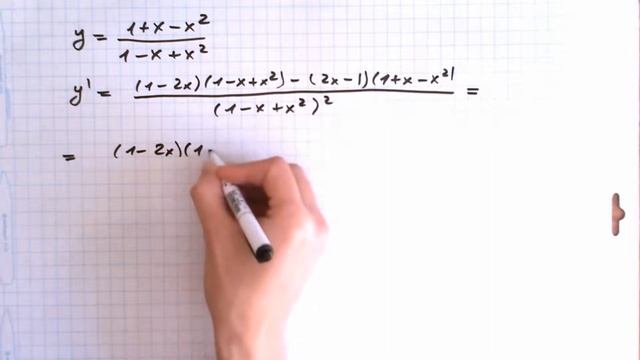 y = \frac{1+x-x^2}{1-x+x^2}
y' = \frac{(1-2x)(1-x+x^2)-(2x-1)(1+x-x^2)}{(1-x+x^2)^2} =
= (1-2x)(1-